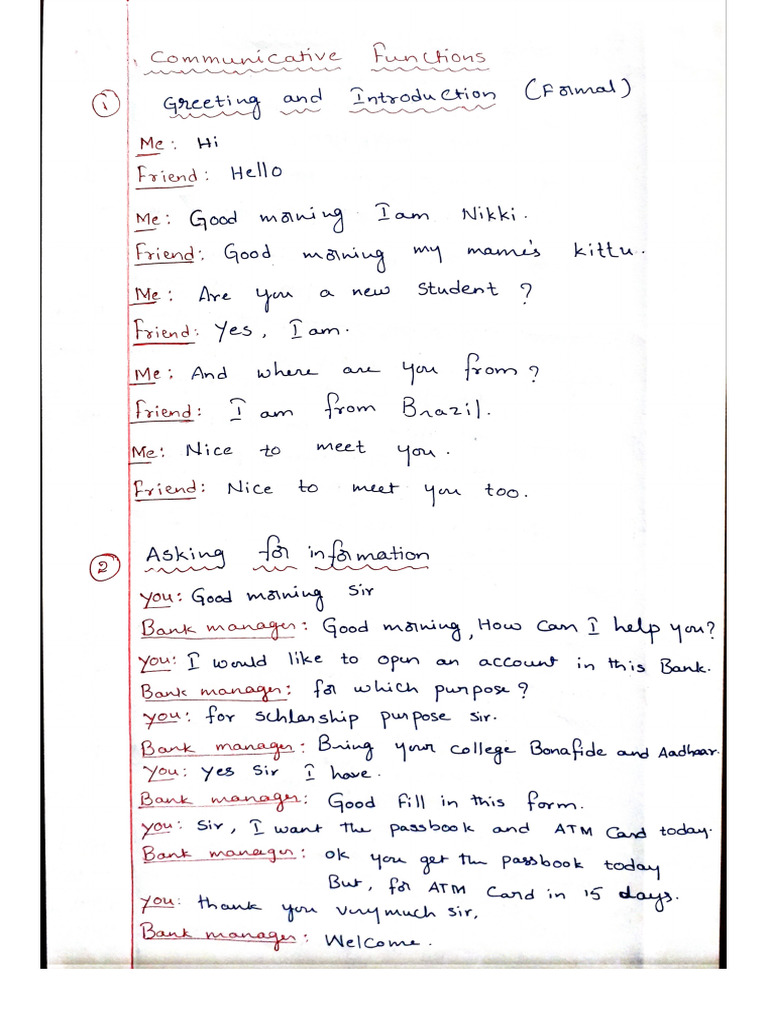 Communicative Functions
1 Greeting and Introduction (Formal)
Me: Hi
Friend: Hello
Me: Good morning I am Nikki.
Friend: Good morning my mame's kittu.
Me: Are you a new student?
Friend: Yes, I am.
Me: And where are you from?
Friend: I am from Brazil.
Me: Nice to meet you.
Friend: Nice to meet you too.
2 Asking for information
you: Good morning Sir
Bank manager: Good morning, How can I help you?
you: I would like to open an account in this Bank.
Bank manager: for which purpose?
you: for schlarship purpose sir.
Bank manager: Bring your college Bonafide and Aadhaar.
You: yes Sir I have.
Bank manager: Good Fill in this form.
you: Sir, I want the passbook and ATM Card today.
Bank manager: ok you get the passbook today
But, for ATM Card in 15 days.
you: thank you verymuch sir,
Bank manager: Welcome.